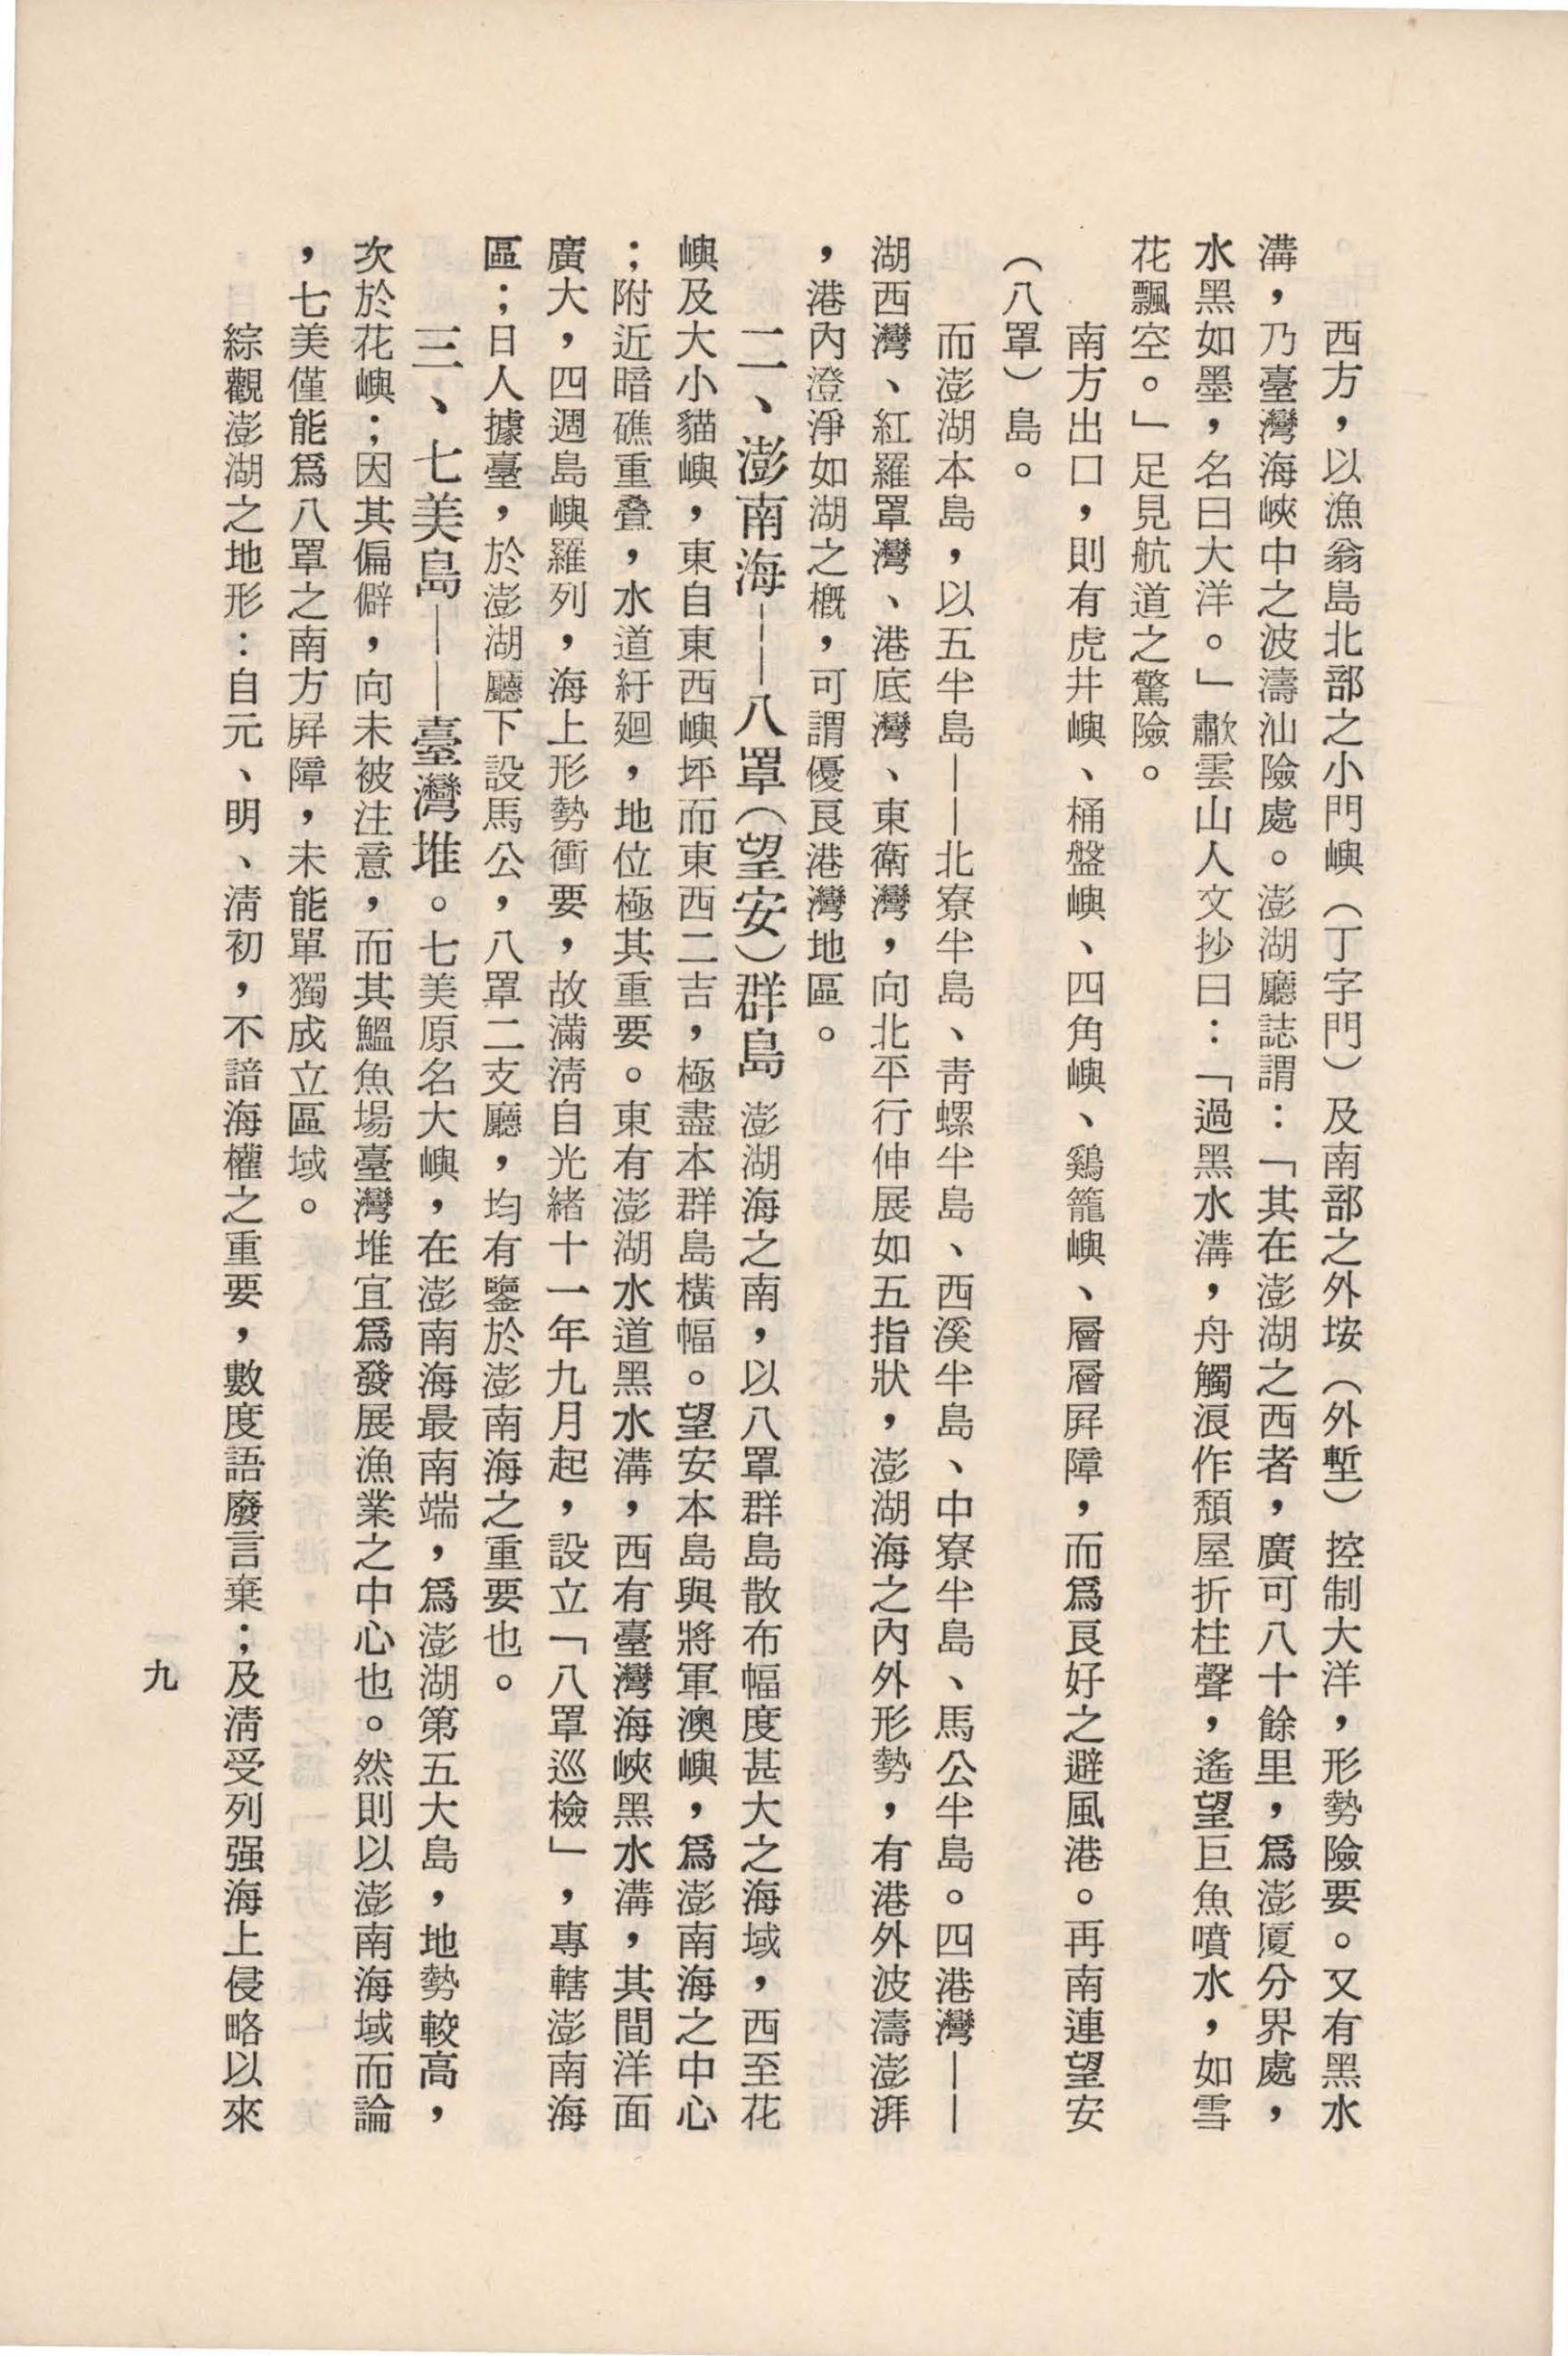 西方，以漁翁島北部之小門嶼（丁字門）及南部之外垵（外塹）控制大洋，形勢險要。又有黑水
溝，乃臺灣海峽中之波濤汕險處。澎湖廳誌謂：「其在澎湖之西者，廣可八十餘里，爲澎厦分界處，
水黑如墨，名曰大洋。」歗雲山人文抄曰：「過黑水溝，舟觸浪作頹屋折柱聲，遙望巨魚噴水，如雪
花飄空。」足見航道之驚險。
南方出口，則有虎井嶼、桶盤嶼、四角嶼、鷄籠嶼、層層屏障，而爲良好之避風港。再南連望安
（八罩）島。
而澎湖本島，以五半島——北寮半島、青螺半島、西溪半島、中寮半島、馬公半島。四港灣——
湖西灣、紅羅罩灣、港底灣、東衛灣，向北平行伸展如五指狀，澎湖海之內外形勢，有港外波濤澎湃
，港內澄淨如湖之概，可謂優良港灣地區。
二、澎南海——八罩（望安）群島 澎湖海之南，以八罩群島散布幅度甚大之海域，西至花
嶼及大小貓嶼，東自東西嶼坪而東西二吉，極盡本群島橫幅。望安本島與將軍澳嶼，爲澎南海之中心
；附近暗礁重叠，水道紆廻，地位極其重要。東有澎湖水道黑水溝，西有臺灣海峽黑水溝，其間洋面
廣大，四週島嶼羅列，海上形勢衝要，故滿清自光緒十一年九月起，設立「八罩巡檢」，專轄澎南海
區；日人據臺，於澎湖廳下設馬公，八罩二支廳，均有鑒於澎南海之重要也。
三、七美島——臺灣堆。七美原名大嶼，在澎南海最南端，爲澎湖第五大島，地勢較高，
次於花嶼；因其偏僻，向未被注意，而其鰮魚場臺灣堆宜爲發展漁業之中心也。然則以澎南海域而論
，七美僅能爲八罩之南方屏障，未能單獨成立區域。
綜觀澎湖之地形：自元、明、清初，不諳海權之重要，數度語廢言棄；及清受列强海上侵略以來
一九